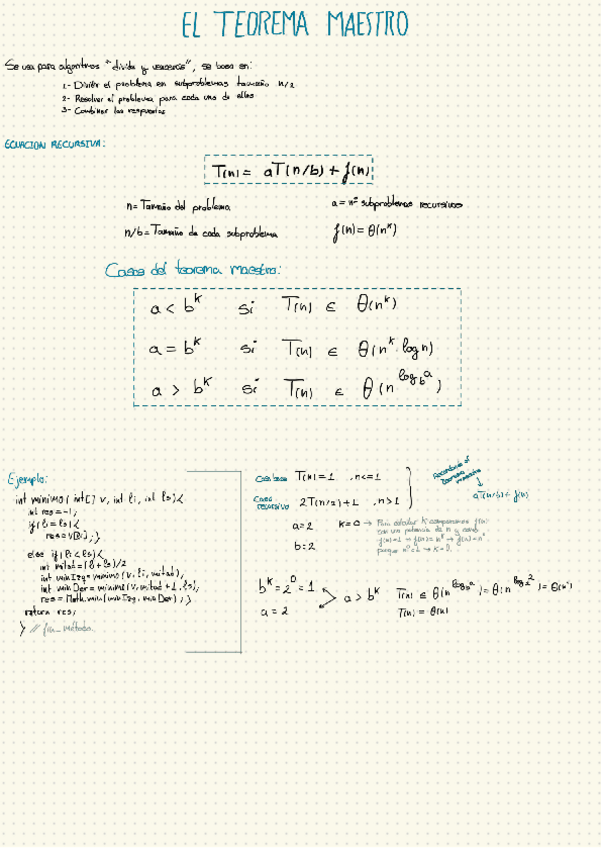 EL TEOREMA MAESTRO
Se usa para algoritmos "divide y vencerás", se basa en:
1- Dividir el problema en subproblemas tamaño n/2
2- Resolver el problema para cada uno de ellos
3- Combinar las respuestas
ECUACION RECURSIVA:
T(n) = aT(n/b) + f(n)
n = Tamaño del problema
a = nº subproblemas recursivos
n/b = Tamaño de cada subproblema
f(n) = θ(n^k)
Casos del teorema maestro:
a < b^k si T(n) ∈ θ(n^k)
a = b^k si T(n) ∈ θ(n^k · log n)
a > b^k si T(n) ∈ θ(n^log_b a)
Ejemplo:
int minimo(int[] v, int li, int ls){
int res = -1;
if(li = ls){
res = v[li]; }
else if(li < ls){
int mitad = (li + ls)/2
int minIzq = minimo(v, li, mitad);
int minDer = minimo(v, mitad + 1, ls);
res = Math.min(minIzq, minDer); }
return res;
} // fin_método.
Caso base T(n) = 1 , n <= 1
Caso recursivo 2T(n/2) + 1 , n > 1
Recordamos el teorema maestro
aT(n/b) + f(n)
a = 2
b = 2
K = 0 → Para calcular K comparamos f(n)
con una potencia de n y como
f(n) = 1 → f(n) = n^k → f(n) = n^0
porque n^0 = 1 → K = 0.
b^k = 2^0 = 1
a = 2
a > b^k
T(n) ∈ θ(n^log_b a) = θ(n^log_2 2) = θ(n^1)
T(n) = θ(n)